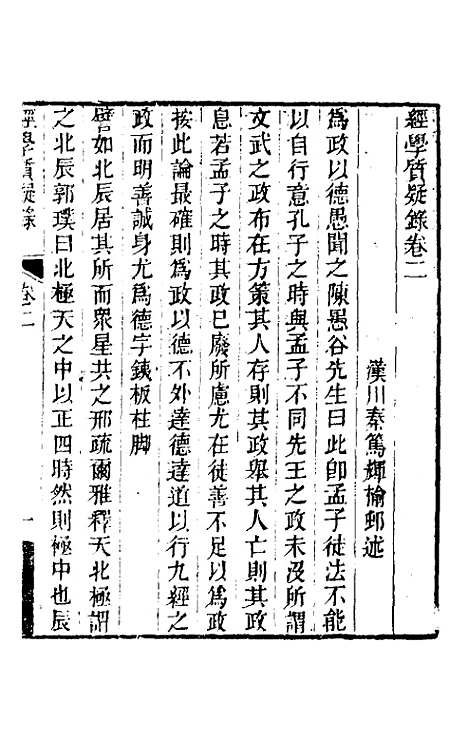 經學質疑錄卷二
漢川秦篤輝榆邨述
爲政以德愚聞之陳愚谷先生曰此卽孟子徒法不能
以自行意孔子之時與孟子不同先王之政未沒所謂
文武之政布在方策其人存則其政舉其人亡則其政
息若孟子之時其政已廢所慮尤在徒善不足以爲政
按此論最確則爲政以德不外達德達道以行九經之
政而明善誠身尤爲德字鉄板柱脚
譬如北辰居其所而衆星共之邢疏爾雅釋天北極謂
之北辰郭璞曰北極天之中以正四時然則極中也辰
經學質疑錄
卷二
一